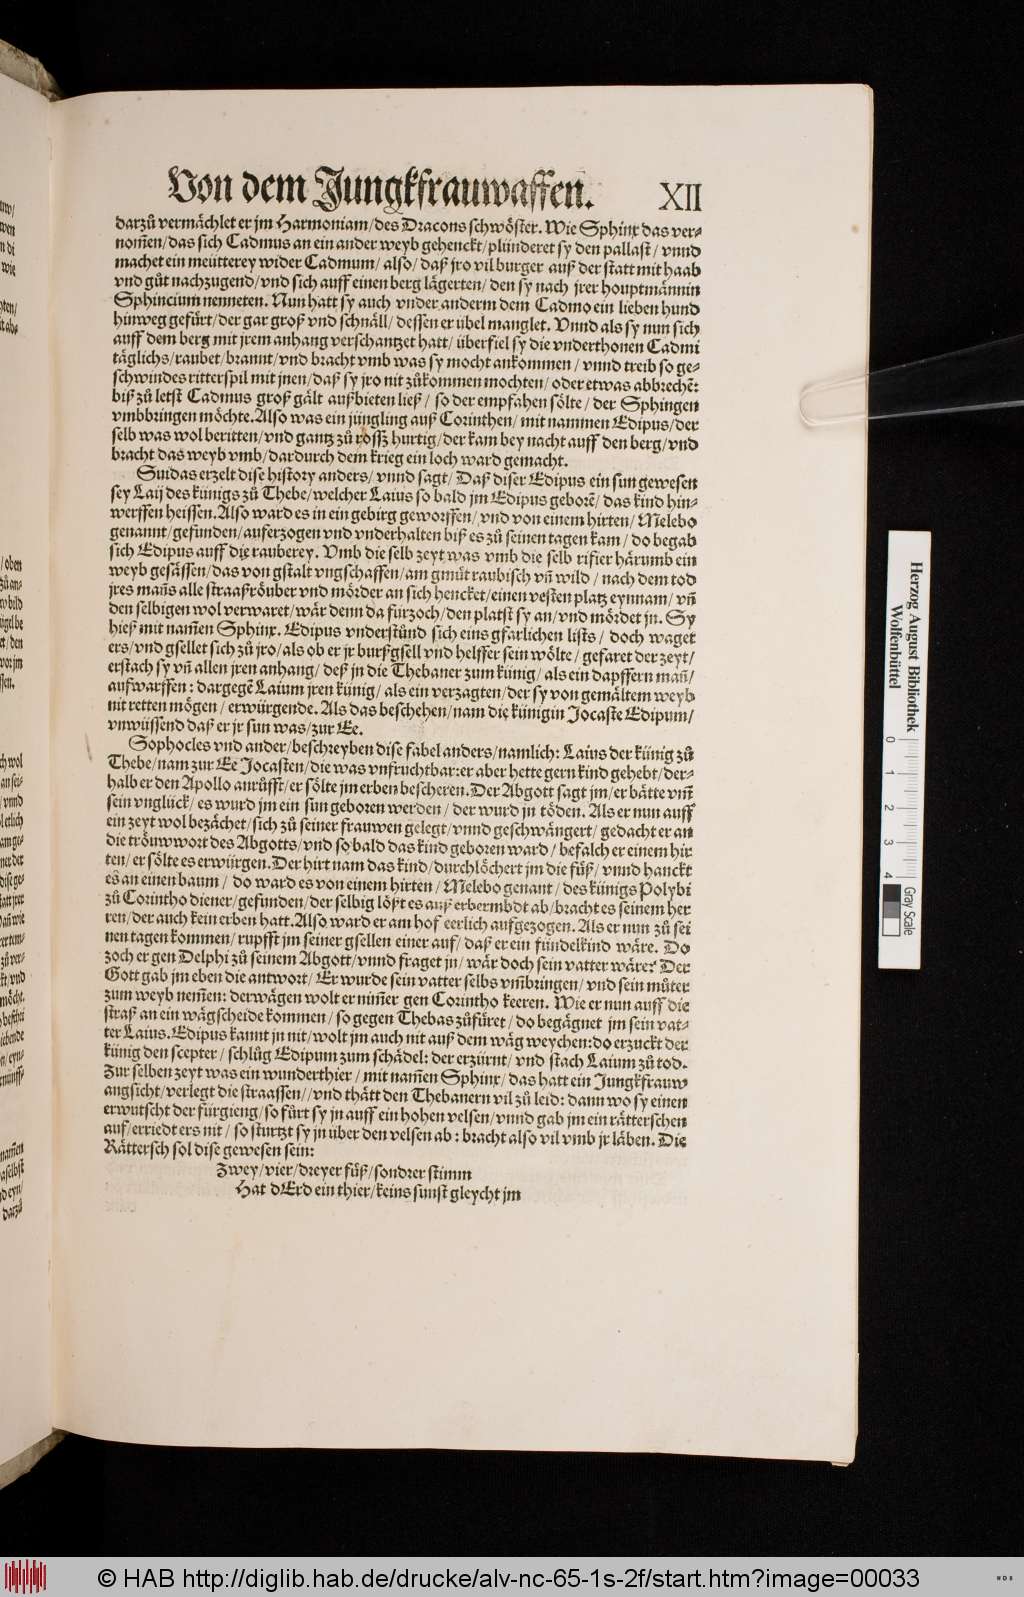 Von dem Jungkfrauwaffen. XII
darzů vermächlet er jm Harmoniam/des Dracons schwöster. Wie Sphinx das ver-
nom̃en/das sich Cadmus an ein ander weyb gehenckt/plünderet sy den pallast/ vnnd
machet ein meütterey wider Cadmum/ also/ daß jro vil burger auß der statt mit haab
vnd gůt nachzugend/vnd sich auff einen berg lägerten/ den sy nach jrer houptmännin
Sphincium nenneten. Nun hatt sy auch vnder anderm dem Cadmo ein lieben hund
hinweg gefürt/der gar groß vnd schnäll/ dessen er übel manglet. Vnnd als sy nun sich
auff dem berg mit jrem anhang verschantzet hatt/ überfiel sy die vnderthonen Cadmi
täglichs/raubet/brannt/vnd bracht vmb was sy mocht ankommen/ vnnd treib so ge-
schwindes ritterspil mit jnen/daß sy jro nit zůkommen mochten/ oder etwas abbrechẽ:
biß zů letst Cadmus groß gält außbieten ließ/ so der empfahen sölte/ der Sphingen
vmbbringen möchte. Also was ein jüngling auß Corinthen/ mit nammen Edipus/der
selb was wol beritten/vnd gantz zů rossz hurtig/der kam bey nacht auff den berg/vnd
bracht das weyb vmb/dardurch dem krieg ein loch ward gemacht.
Suidas erzelt dise history anders/ vnnd sagt/ Daß diser Edipus ein sun gewesen
sey Laij des künigs zů Thebe/welcher Laius so bald jm Edipus geborẽ/ das kind hin-
werffen heissen. Also ward es in ein gebirg geworffen/ vnd von einem hirten/ Melebo
genannt/gefunden/auferzogen vnd vnderhalten biß es zů seinen tagen kam/ do begab
sich Edipus auff die rauberey. Vmb die selb zeyt was vmb die selb rifier härumb ein
weyb gesässen/das von gstalt vngschaffen/am gmüt raubisch vñ wild/ nach dem tod
jres mañs alle straaßröuber vnd mörder an sich hencket/einen vesten platz eynnam/ vñ
den selbigen wol verwaret/wär denn da fürzoch/den platst sy an/vnd mördet jn. Sy
hieß mit nam̃en Sphinx. Edipus vnderstůnd sich eins gfarlichen lists/ doch waget
ers/vnd gsellet sich zů jro/als ob er jr bursßgsell vnd helffer sein wölte/ gefaret der zeyt/
erstach sy vñ allen jren anhang/ deß jn die Thebaner zum künig/ als ein dapffern mañ/
aufwarffen: dargegẽ Laium jren künig/ als ein verzagten/der sy von gemältem weyb
nit retten mögen/ erwürgende. Als das beschehen/nam die künigin Jocaste Edipum/
vnwüssend daß er jr sun was/zur Ee.
Sophocles vnd ander/beschreyben dise fabel anders/namlich: Laius der künig zů
Thebe/nam zur Ee Jocasten/die was vnfruchtbar: er aber hette gern kind gehebt/der-
halb er den Apollo anrůfft/er sölte jm erben bescheren. Der Abgott sagt jm/er bätte vm̃
sein vnglück/ es wurd jm ein sun geboren werden/ der wurd jn töden. Als er nun auff
ein zeyt wol bezächet/sich zů seiner frauwen gelegt/vnnd geschwängert/ gedacht er an
die tröuwwort des Abgotts/vnd so bald das kind geboren ward/ befalch er einem hir
ten/er sölte es erwürgen. Der hirt nam das kind/durchlöchert jm die füß/ vnnd hanckt
es an einen baum/ do ward es von einem hirten/ Melebo genant/ des künigs Polybi
zů Corintho diener/gefunden/der selbig lößt es auß erbermbdt ab/bracht es seinem her
ren/der auch kein erben hatt. Also ward er am hof eerlich aufgezogen. Als er nun zů sei
nen tagen kommen/ rupfft jm seiner gsellen einer auf/ daß er ein fündelkind wäre. Do
zoch er gen Delphi zů seinem Abgott/vnnd fraget jn/wär doch sein vatter wäre? Der
Gott gab jm eben die antwort/ Er wurde sein vatter selbs vm̃bringen/ vnd sein můter
zum weyb nem̃en: derwägen wolt er nim̃er gen Corintho keeren. Wie er nun auff die
straß an ein wägscheide kommen/ so gegen Thebas zůfüret/ do begägnet jm sein vat-
ter Laius. Edipus kannt jn nit/wolt jm auch nit auß dem wäg weychen: do erzuckt der
künig den scepter/ schlůg Edipum zum schädel: der erzürnt/ vnd stach Laium zů tod.
Zur selben zeyt was ein wunderthier/ mit nam̃en Sphinx/ das hatt ein Jungkfrauw
angsicht/verlegt die straassen//vnd thätt den Thebanern vil zů leid: dann wo sy einen
erwutscht der fürgieng/so fůrt sy jn auff ein hohen velsen/vnnd gab jm ein rätterschen
auf/erriedt ers nit/ so sturtzt sy jn über den velsen ab: bracht also vil vmb jr läben. Die
Rättersch sol dise gewesen sein:
Zwey/vier/dreyer füß/sondrer stimm
Hat dErd ein thier/keins sunst gleycht jm
Herzog August Bibliothek
Wolfenbüttel
0 1 2 3 4
Gray Scale
© HAB http://diglib.hab.de/drucke/alv-nc-65-1s-2f/start.htm?image=00033